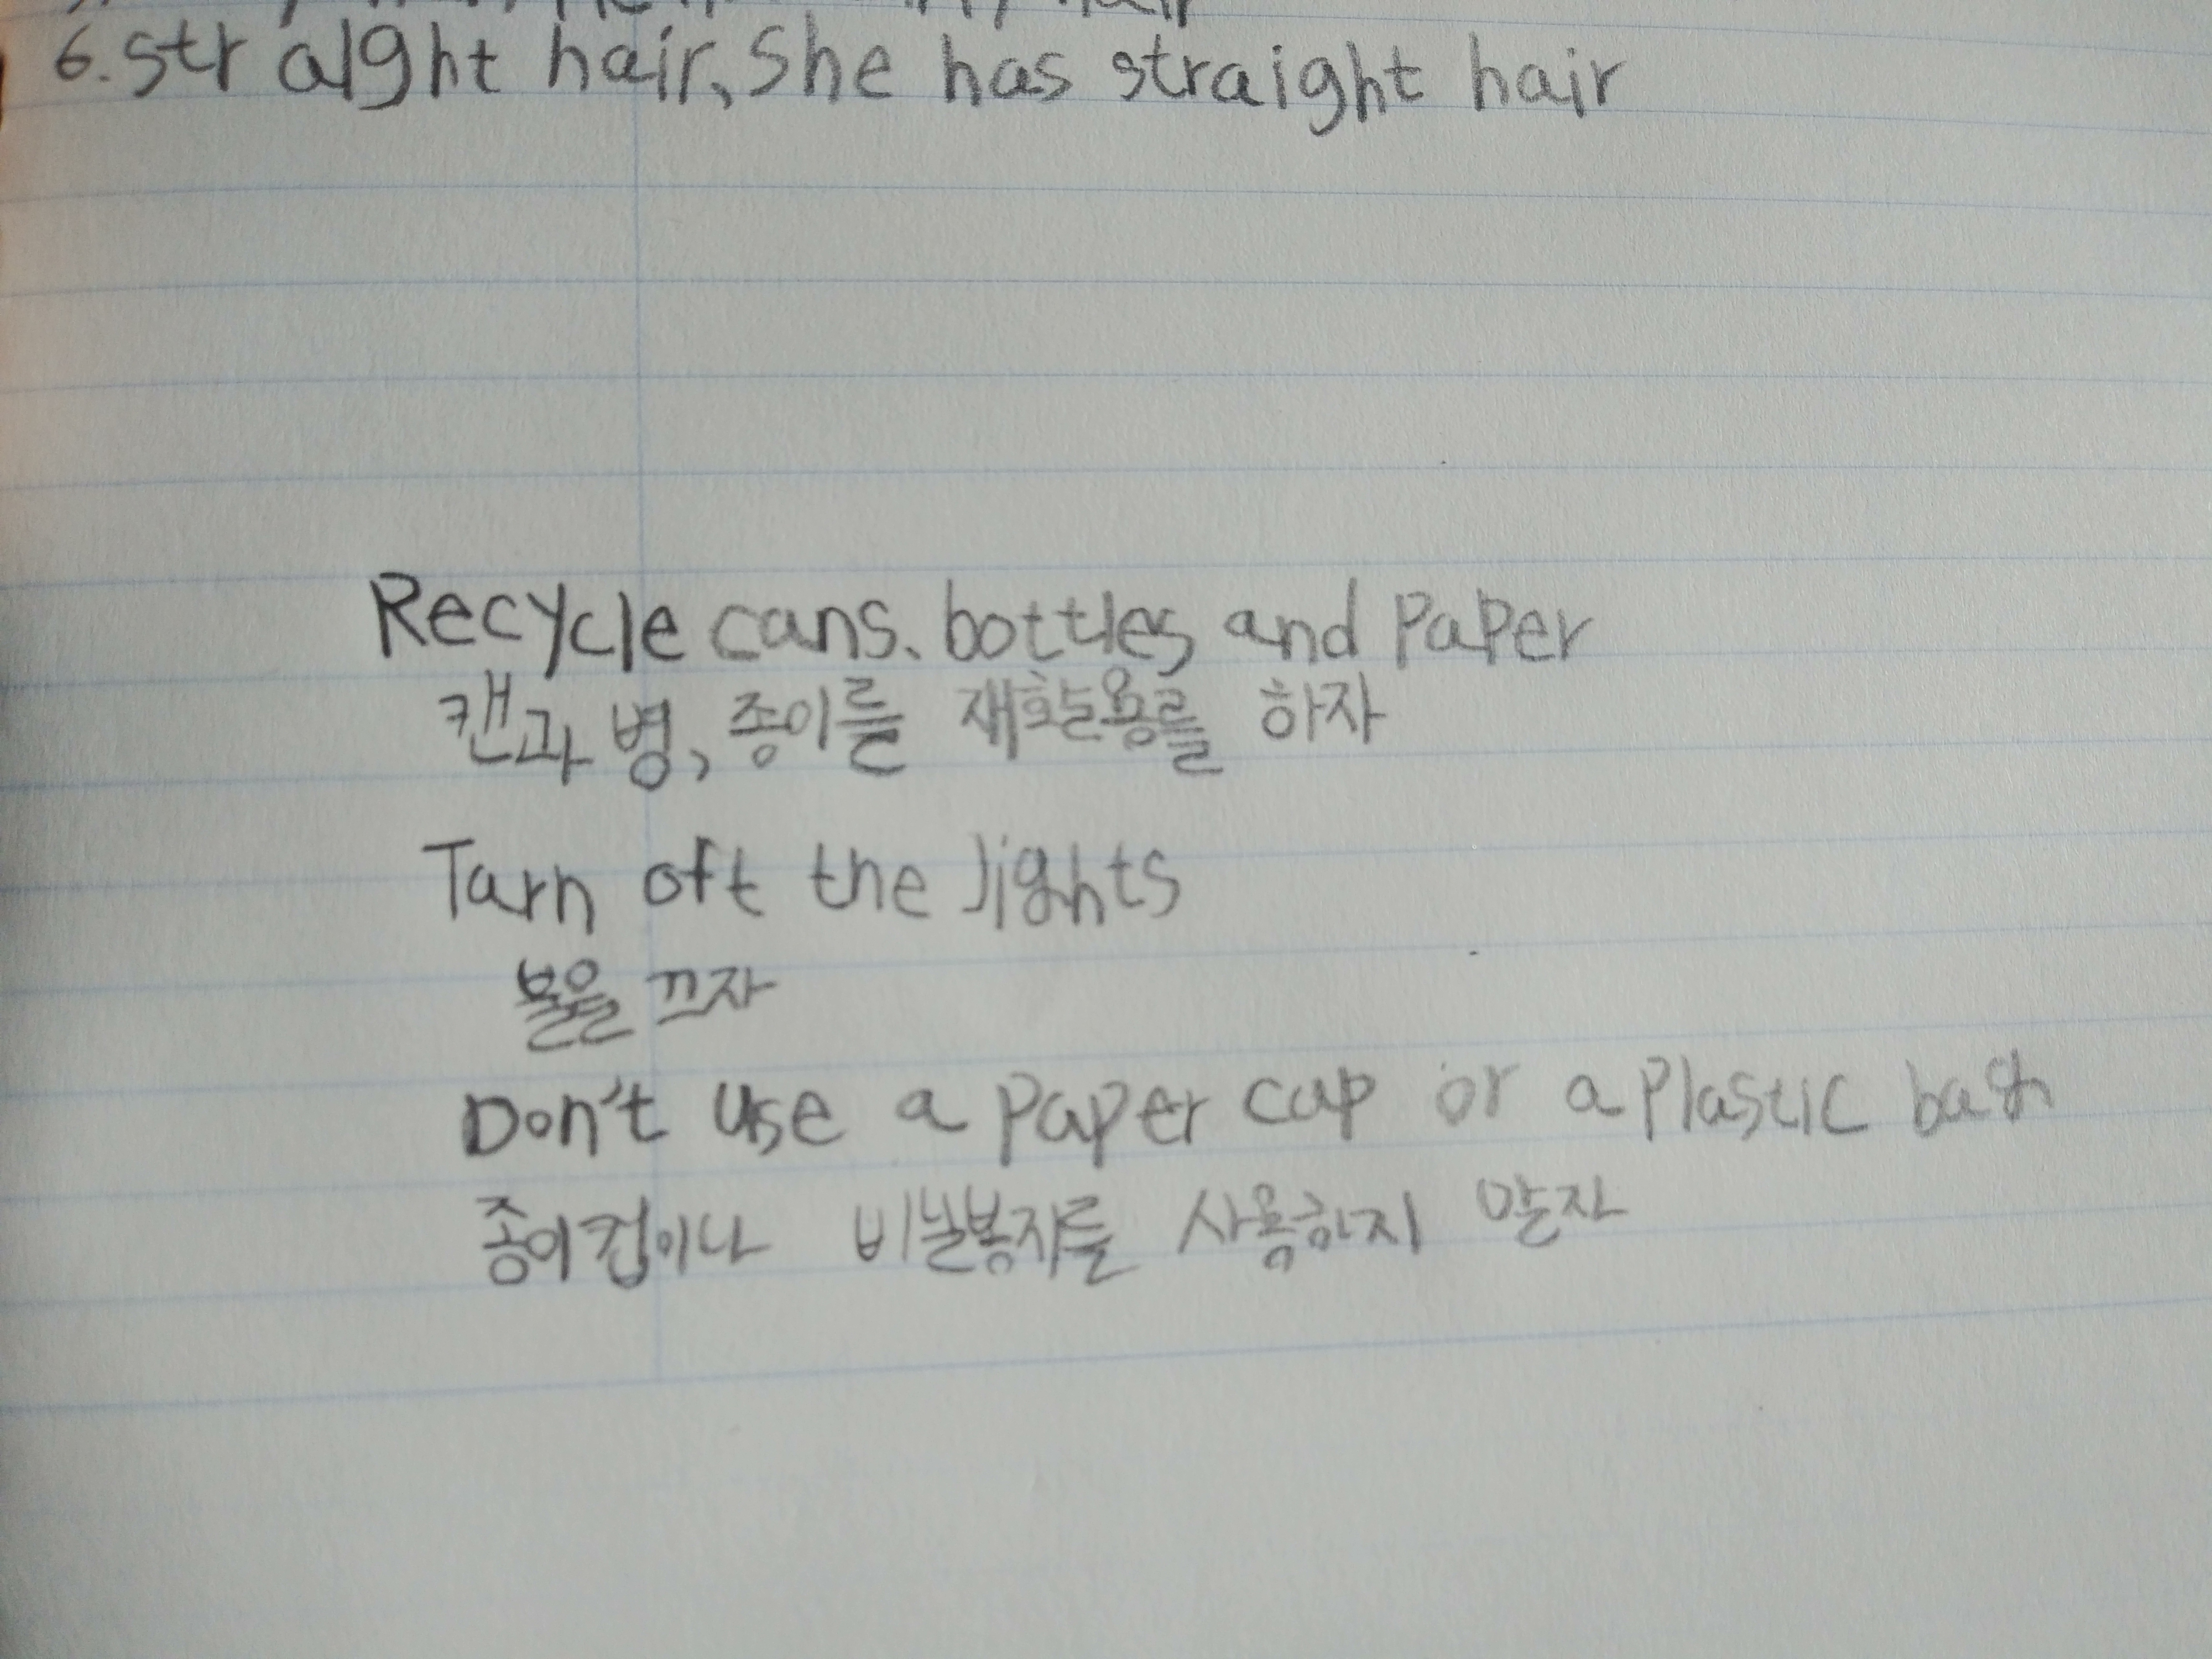 6. straight hair, She has straight hair
Recycle cans. bottles and PaPer
캔과 병, 종이를 재활용를 하자
Tarn oft the lights
불을 끄자
Don't use a paper cup or a Plastic
종이컵이나 비닐봉지를 사용하지 말자